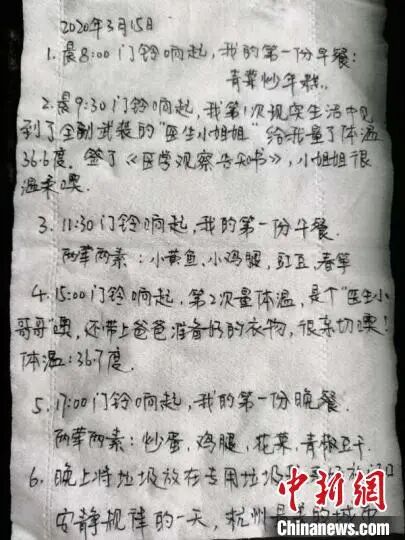 2020年3月15日
1. 晨8:00 门铃响起，我的第一份早餐：
青菜炒年糕。
2. 晨9:30 门铃响起，我第1次现实生活中见
到了全副武装的"医生小姐姐"给我量了体温
36.6度。签了《医学观察告知书》，小姐姐很
温柔噢。
3. 11:30 门铃响起，我的第一份午餐.
两荤两素：小黄鱼、小鸡腿、豇豆、春笋
4. 15:00 门铃响起，第2次量体温，是个"医生小
哥哥"噢，还带上爸爸准备好的衣物，很亲切噢！
体温：36.7度.
5. 17:00 门铃响起，我的第一份晚餐.
两荤两素：炒蛋、鸡腿、花菜、青椒豆干.
6. 晚上将垃圾放在专用垃圾
安静规律的一天，杭州
中新网
www.chinanews.com